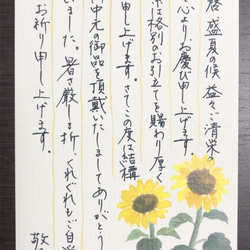 啓 盛夏の候 益々ご清栄の
心よりお慶び申し上げます。
は格別のお引立てを賜わり厚く
申し上げます。さて、この度は結構
中元の御品を頂戴いたしましてありがとう
いました。暑さ厳しき折、くれぐれもご自
お祈り申し上げます。
敬